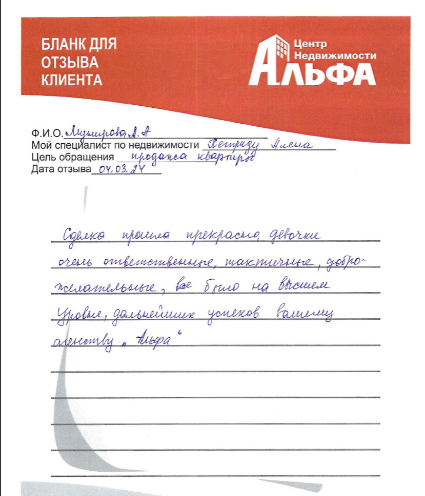 БЛАНК ДЛЯ
ОТЗЫВА
КЛИЕНТА
Центр
Недвижимости
АЛЬФА
Ф.И.О. А.А
Мой специалист по недвижимости Алена
Цель обращения продажа квартиры
Дата отзыва 04.03.24
Сделка прошла прекрасно, девочки
очень ответственные, тактичные, добро-
желательные, все было на высшем
уровне, дальнейших успехов вашему
агенству „Альфа“